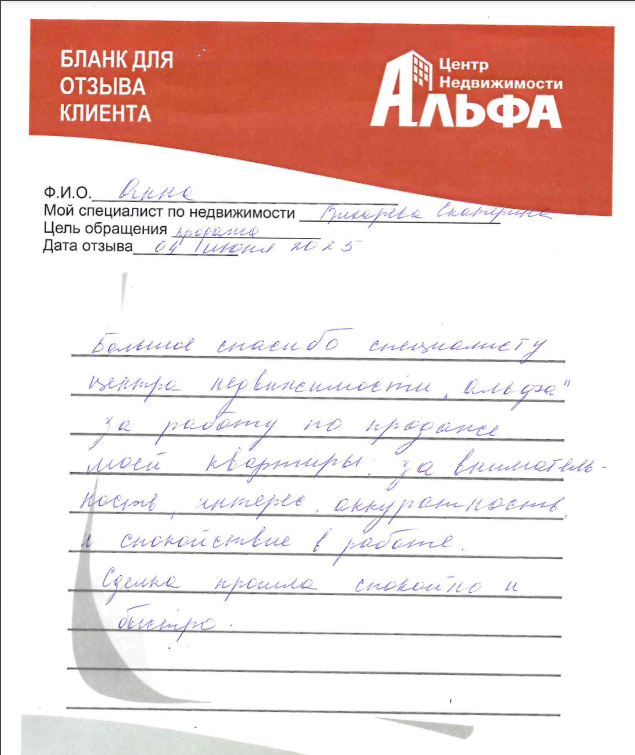 БЛАНК ДЛЯ
ОТЗЫВА
КЛИЕНТА
Центр
Недвижимости
АЛЬФА
Ф.И.О. Анна
Мой специалист по недвижимости Вихарева Екатерина
Цель обращения продажа
Дата отзыва 04 июня 2025
Большое спасибо специалисту
центра недвижимости „Альфа"
за работу по продаже
моей квартиры: за вниматель-
ность, интерес, аккуратность,
и спокойствие в работе.
Сделка прошла спокойно и
быстро.